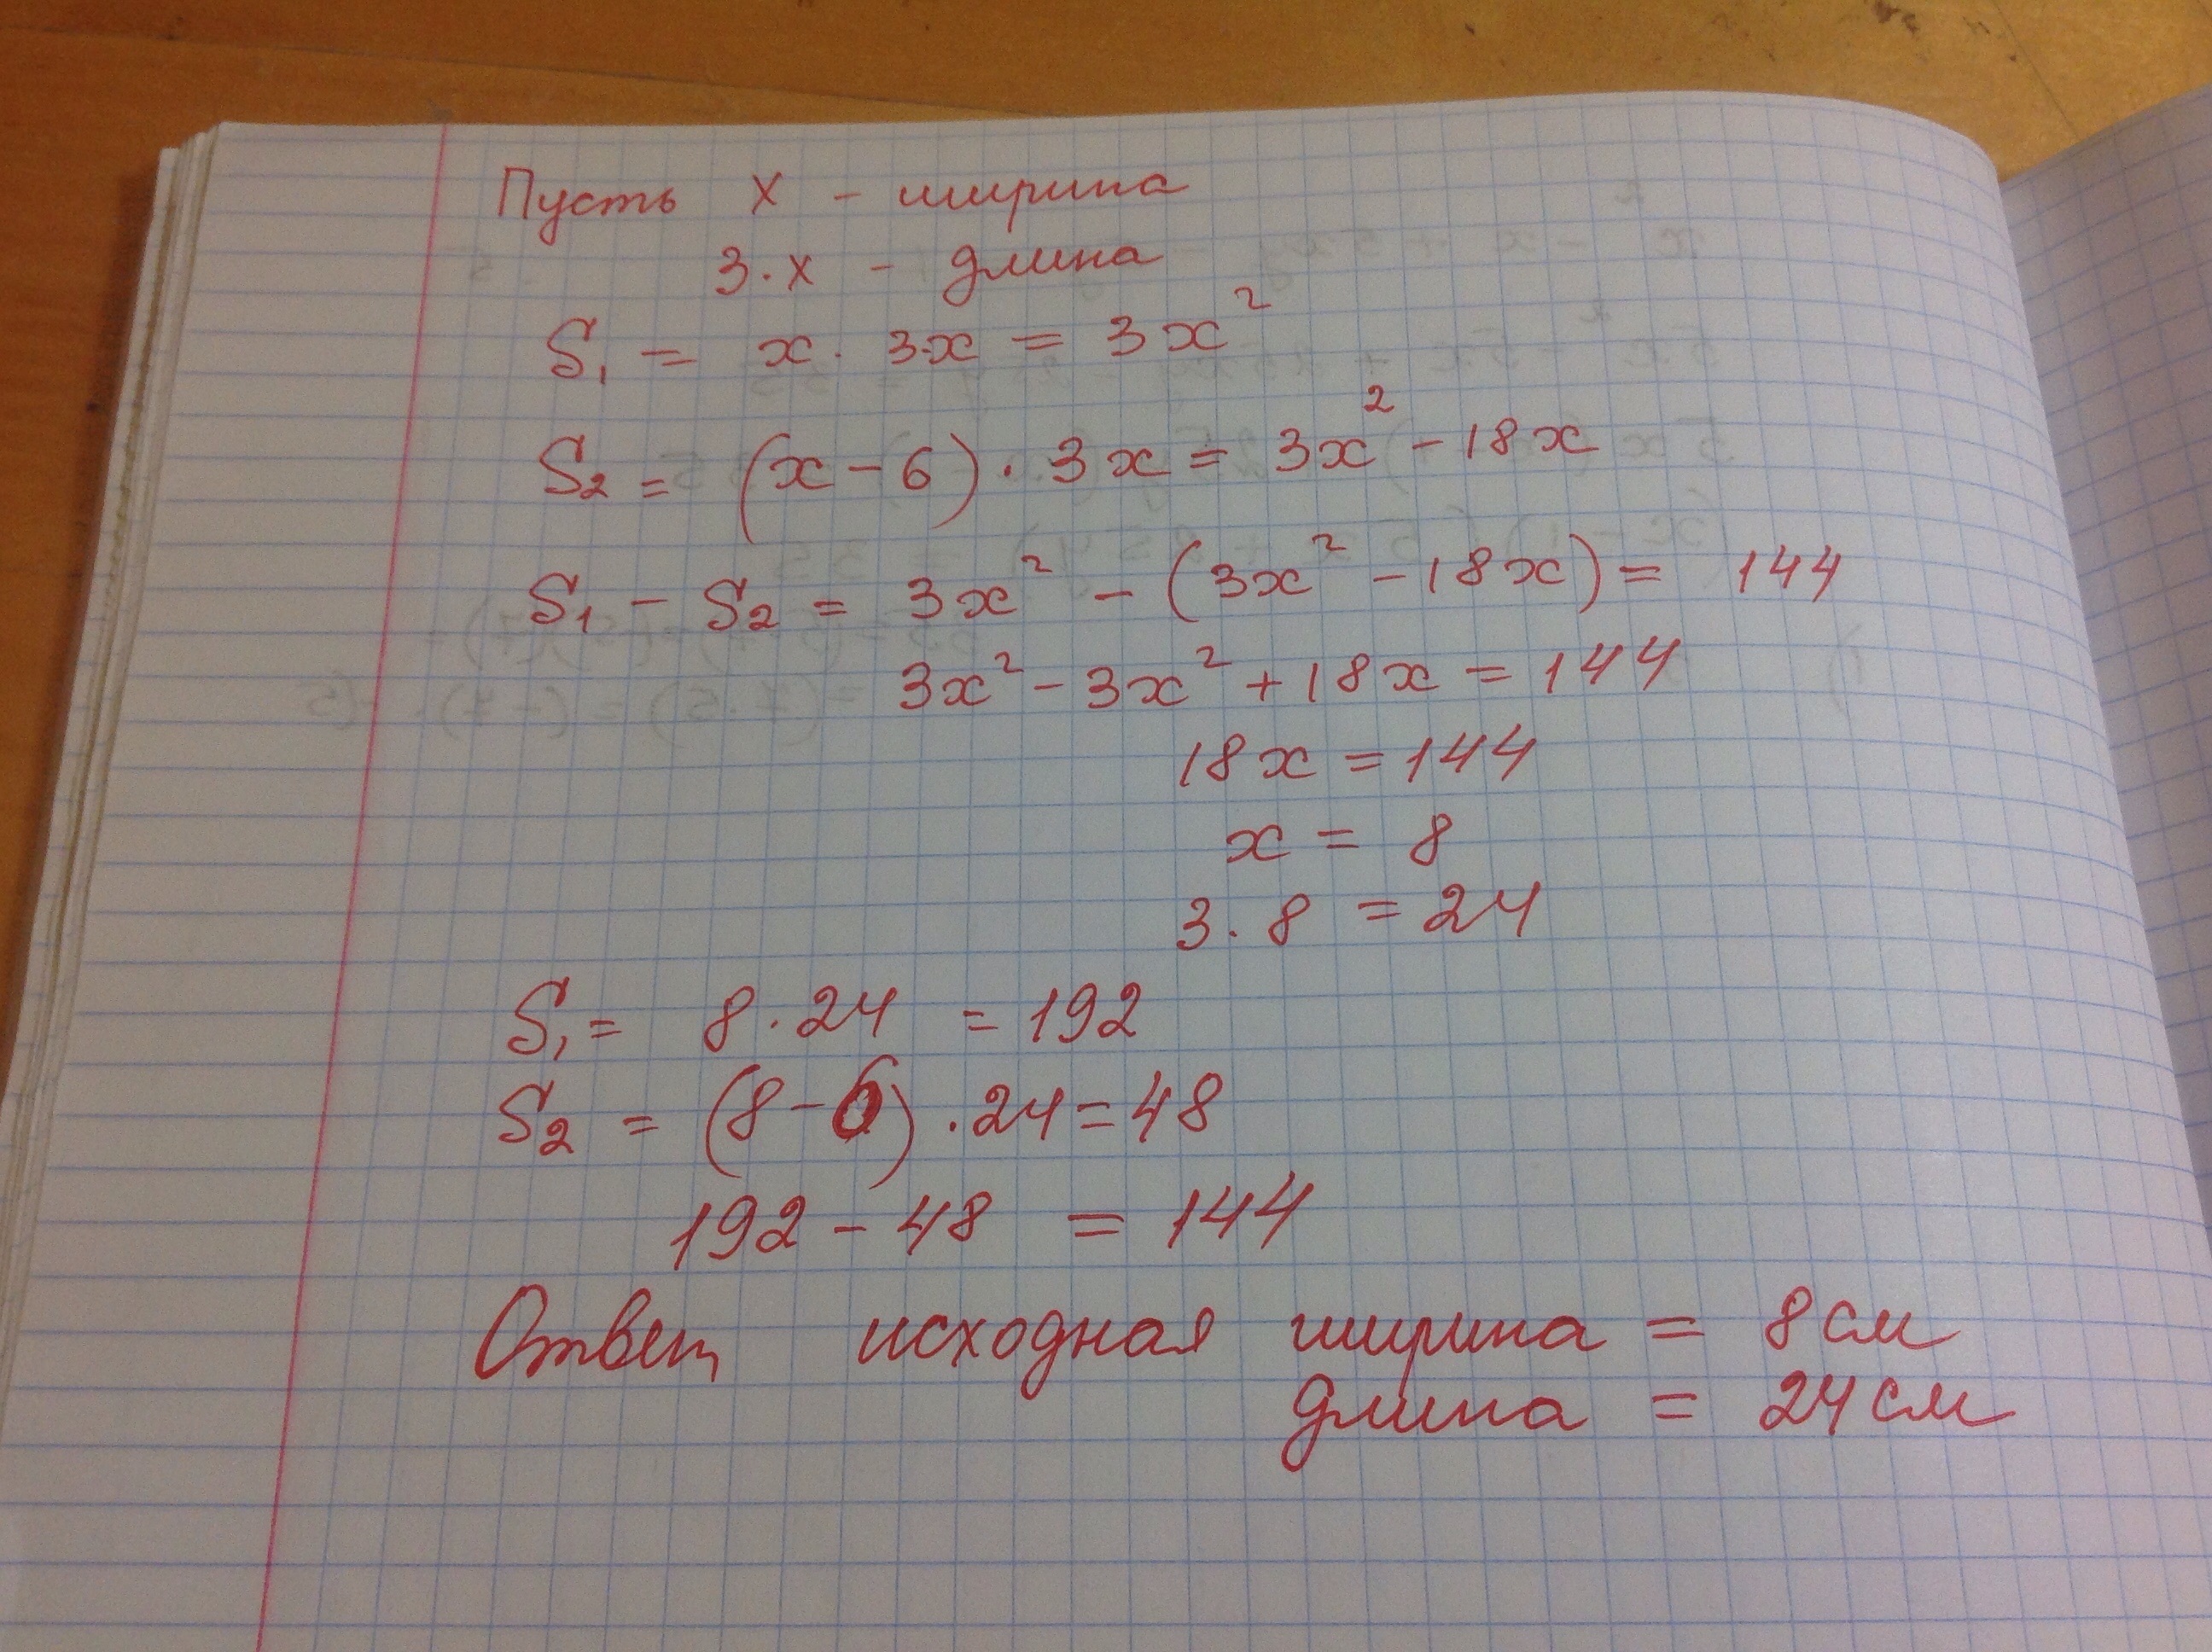 Пусть x - ширина
3·x - длина
S₁ = x · 3x = 3x²
S₂ = (x - 6) · 3x = 3x² - 18x
S₁ - S₂ = 3x² - (3x² - 18x) = 144
3x² - 3x² + 18x = 144
18x = 144
x = 8
3 · 8 = 24
S₁ = 8 · 24 = 192
S₂ = (8 - 6) · 24 = 48
192 - 48 = 144
Ответ исходная ширина = 8 см
длина = 24 см